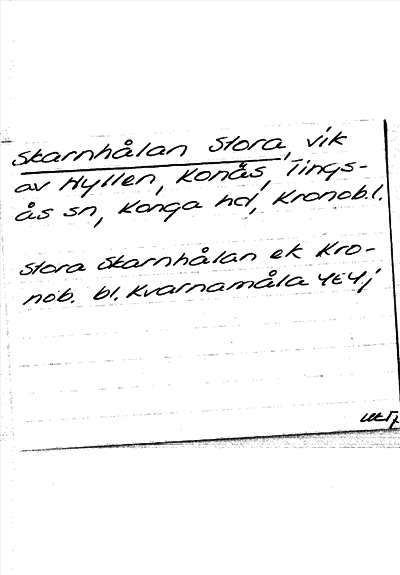 Skarnhålan Stora, vik
av Hyllen, Konås, Tings-
ås sn, Konga hd, Kronob.l.
Stora Skarnhålan ek Kro-
nob. bl. Kvarnamåla 4E4j